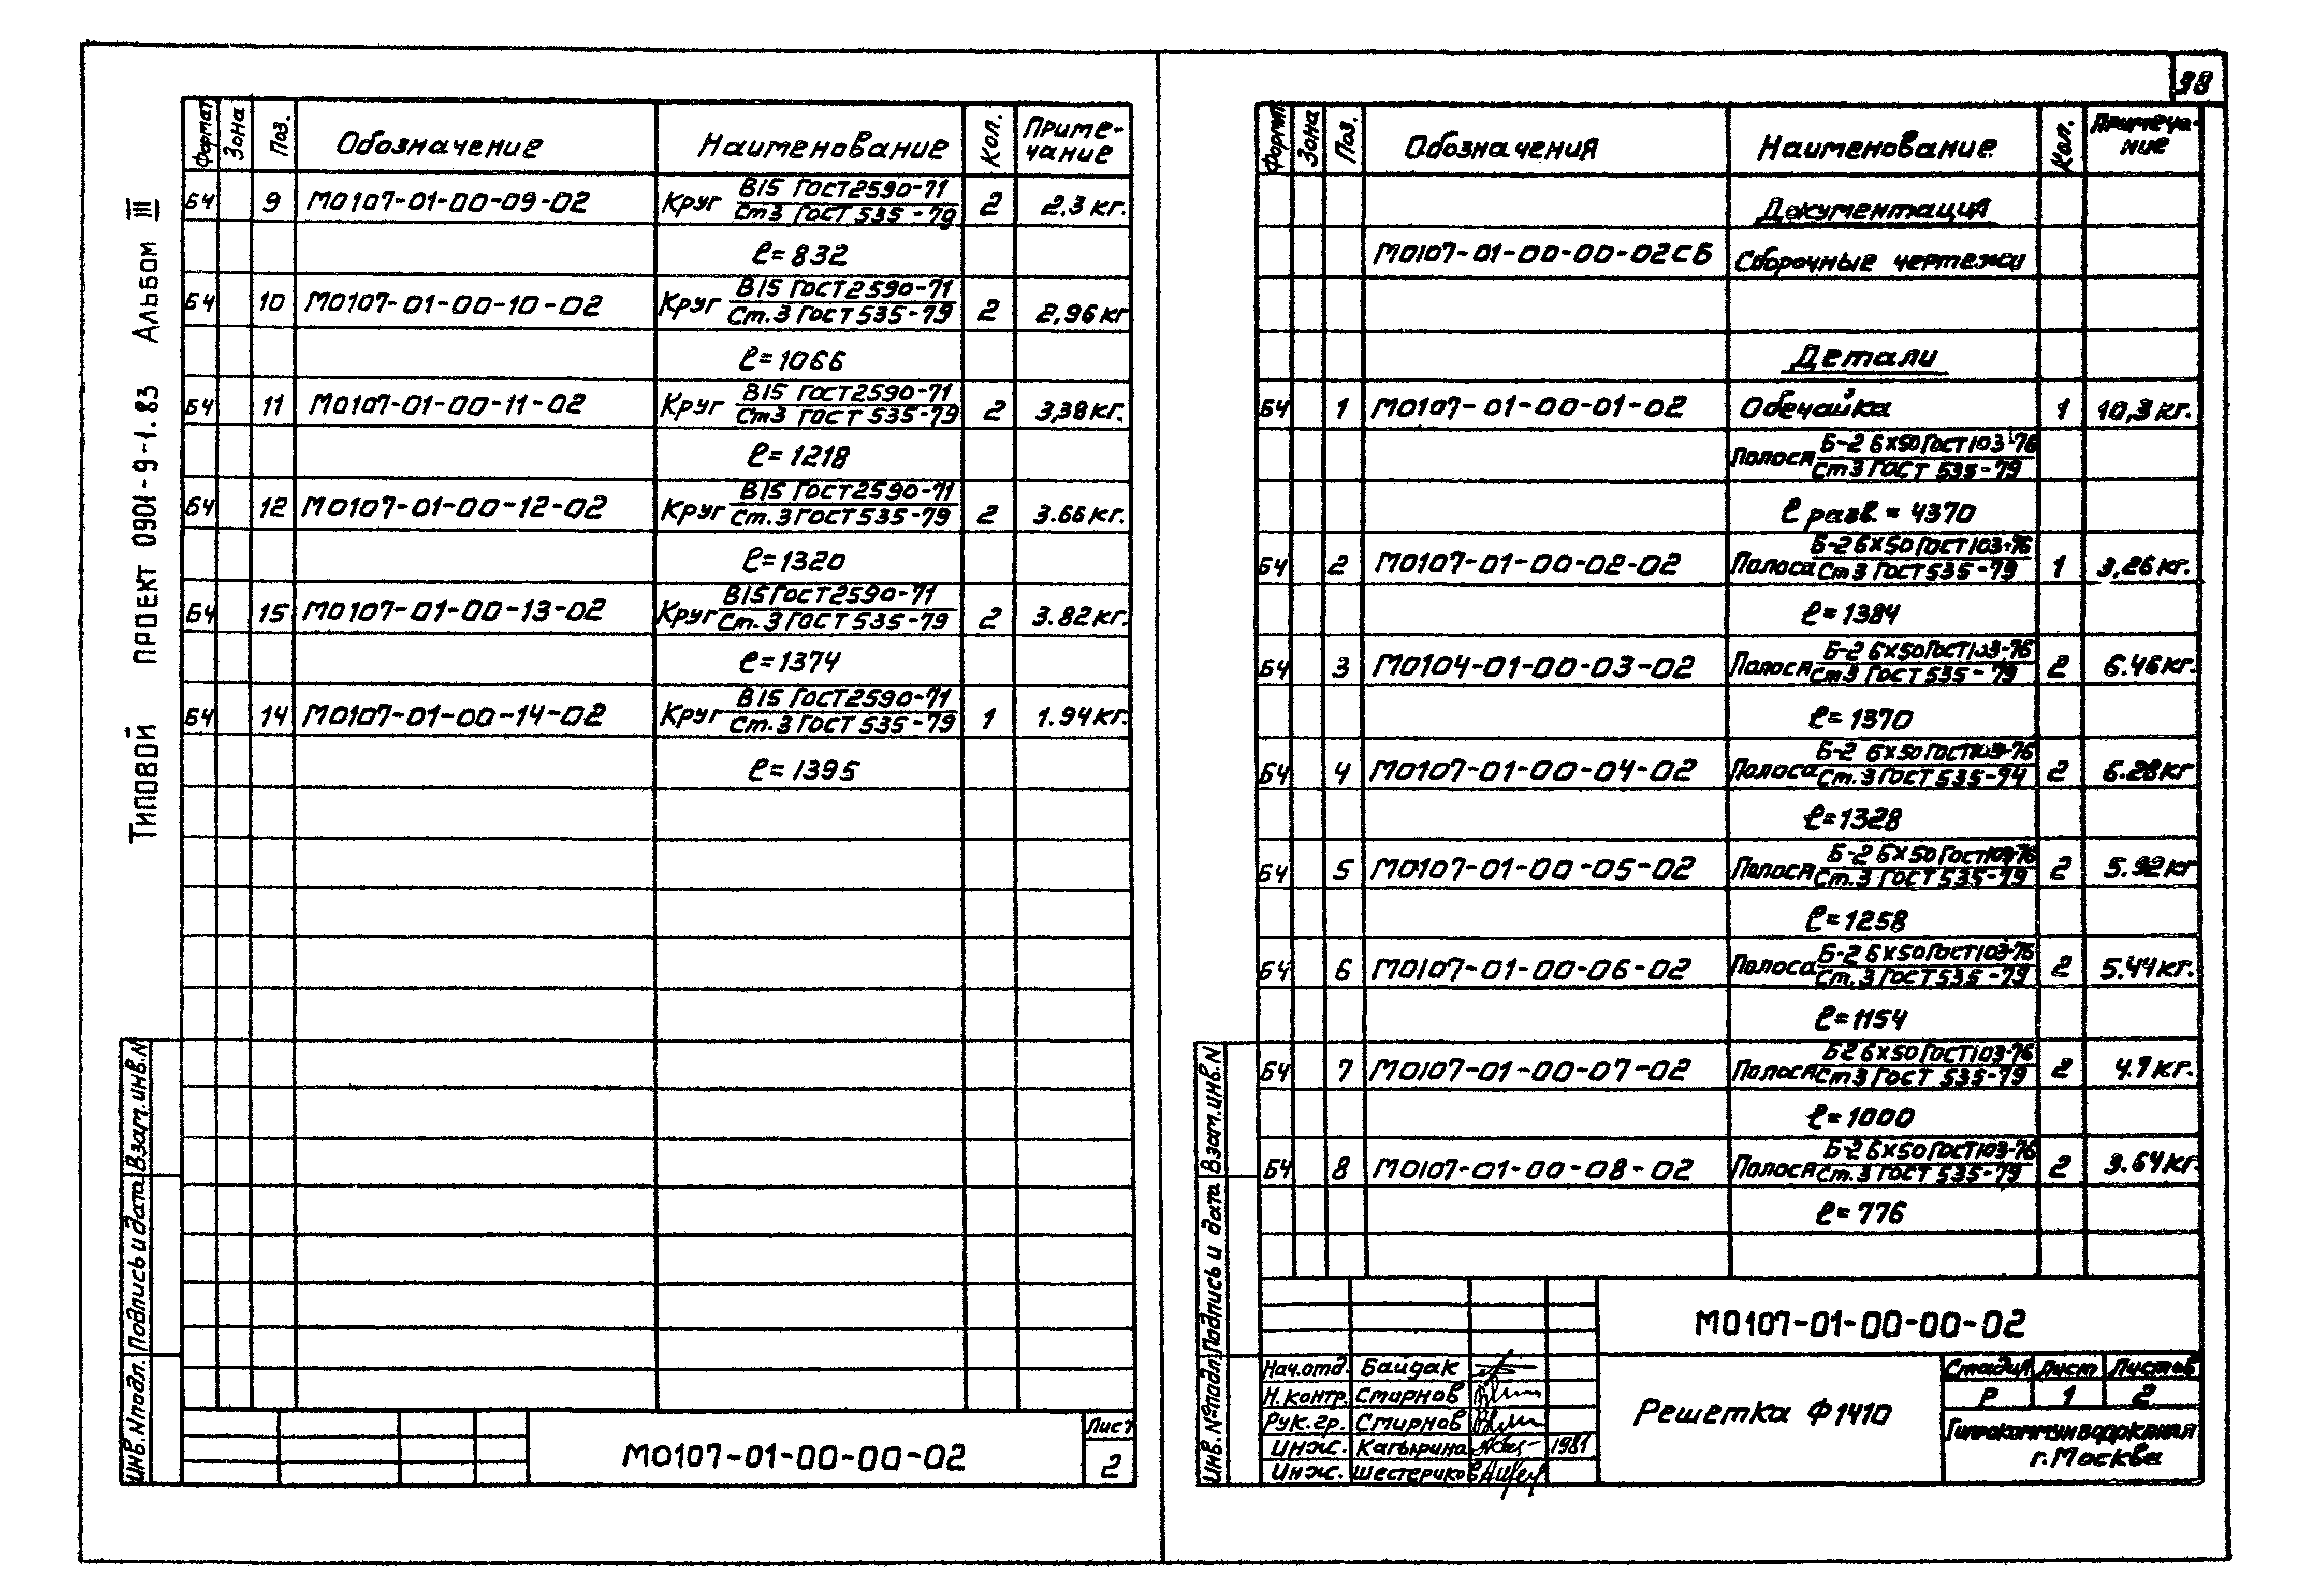 98
Типовой проект 0901-9-1.83 Альбом III
Формат Зона Поз. Обозначение Наименование Кол. Приме-
чание
Б4 9 М0107-01-00-09-02 Круг В15 ГОСТ2590-71 2 2,3 кг.
Ст3 ГОСТ 535-79
ℓ=832
Б4 10 М0107-01-00-10-02 Круг В15 ГОСТ2590-71 2 2,96 кг
Ст.3 ГОСТ 535-79
ℓ=1066
Б4 11 М0107-01-00-11-02 Круг В15 ГОСТ2590-71 2 3,38 кг.
Ст3 ГОСТ 535-79
ℓ=1218
Б4 12 М0107-01-00-12-02 Круг В15 ГОСТ2590-71 2 3.66 кг.
Ст.3 ГОСТ 535-79
ℓ=1320
Б4 15 М0107-01-00-13-02 Круг В15 ГОСТ2590-71 2 3.82 кг.
Ст.3 ГОСТ 535-79
ℓ=1374
Б4 14 М0107-01-00-14-02 Круг В15 ГОСТ2590-71 1 1.94 кг.
Ст.3 ГОСТ 535-79
ℓ=1395
Инв.Nподл. Подпись и дата Взам.инв.N
М0107-01-00-00-02
Лист
2
Формат Зона Поз. Обозначения Наименование Кол. Примеча-
ние
Документация
М0107-01-00-00-02СБ Сборочные чертежи
Детали
Б4 1 М0107-01-00-01-02 Обечайка 1 10,3 кг.
Полоса Б-2 6х50 ГОСТ103-76
Ст3 ГОСТ 535-79
ℓ разв. = 4370
Б4 2 М0107-01-00-02-02 Полоса Б-2 6х50 ГОСТ103-76 1 3,26 кг.
Ст3 ГОСТ 535-79
ℓ=1384
Б4 3 М0104-01-00-03-02 Полоса Б-2 6х50 ГОСТ103-76 2 6.46 кг.
Ст3 ГОСТ 535-79
ℓ=1370
Б4 4 М0107-01-00-04-02 Полоса Б-2 6х50 ГОСТ103-76 2 6.28 кг
Ст.3 ГОСТ 535-74
ℓ=1328
Б4 5 М0107-01-00-05-02 Полоса Б-2 6х50 ГОСТ103-76 2 5.92 кг
Ст.3 ГОСТ 535-79
ℓ=1258
Б4 6 М0107-01-00-06-02 Полоса Б-2 6х50 ГОСТ103-76 2 5.44 кг.
Ст.3 ГОСТ 535-79
ℓ=1154
Б4 7 М0107-01-00-07-02 Полоса Б2 6х50 ГОСТ103-76 2 4.7 кг.
Ст3 ГОСТ 535-79
ℓ=1000
Б4 8 М0107-01-00-08-02 Полоса Б-2 6х50 ГОСТ103-76 2 3.64 кг.
Ст.3 ГОСТ 535-79
ℓ=776
Инв.Nºподл. Подпись и дата Взам.инв.N
М0107-01-00-00-02
Нач.отд. Байдак
Н.контр. Смирнов
Рук.гр. Смирнов
Инж. Кагырина 1981
Инж. Шестериков
Решетка Ф1410
Стадия Лист Листов
Р 1 2
Гипрокоммунводоканал
г.Москва